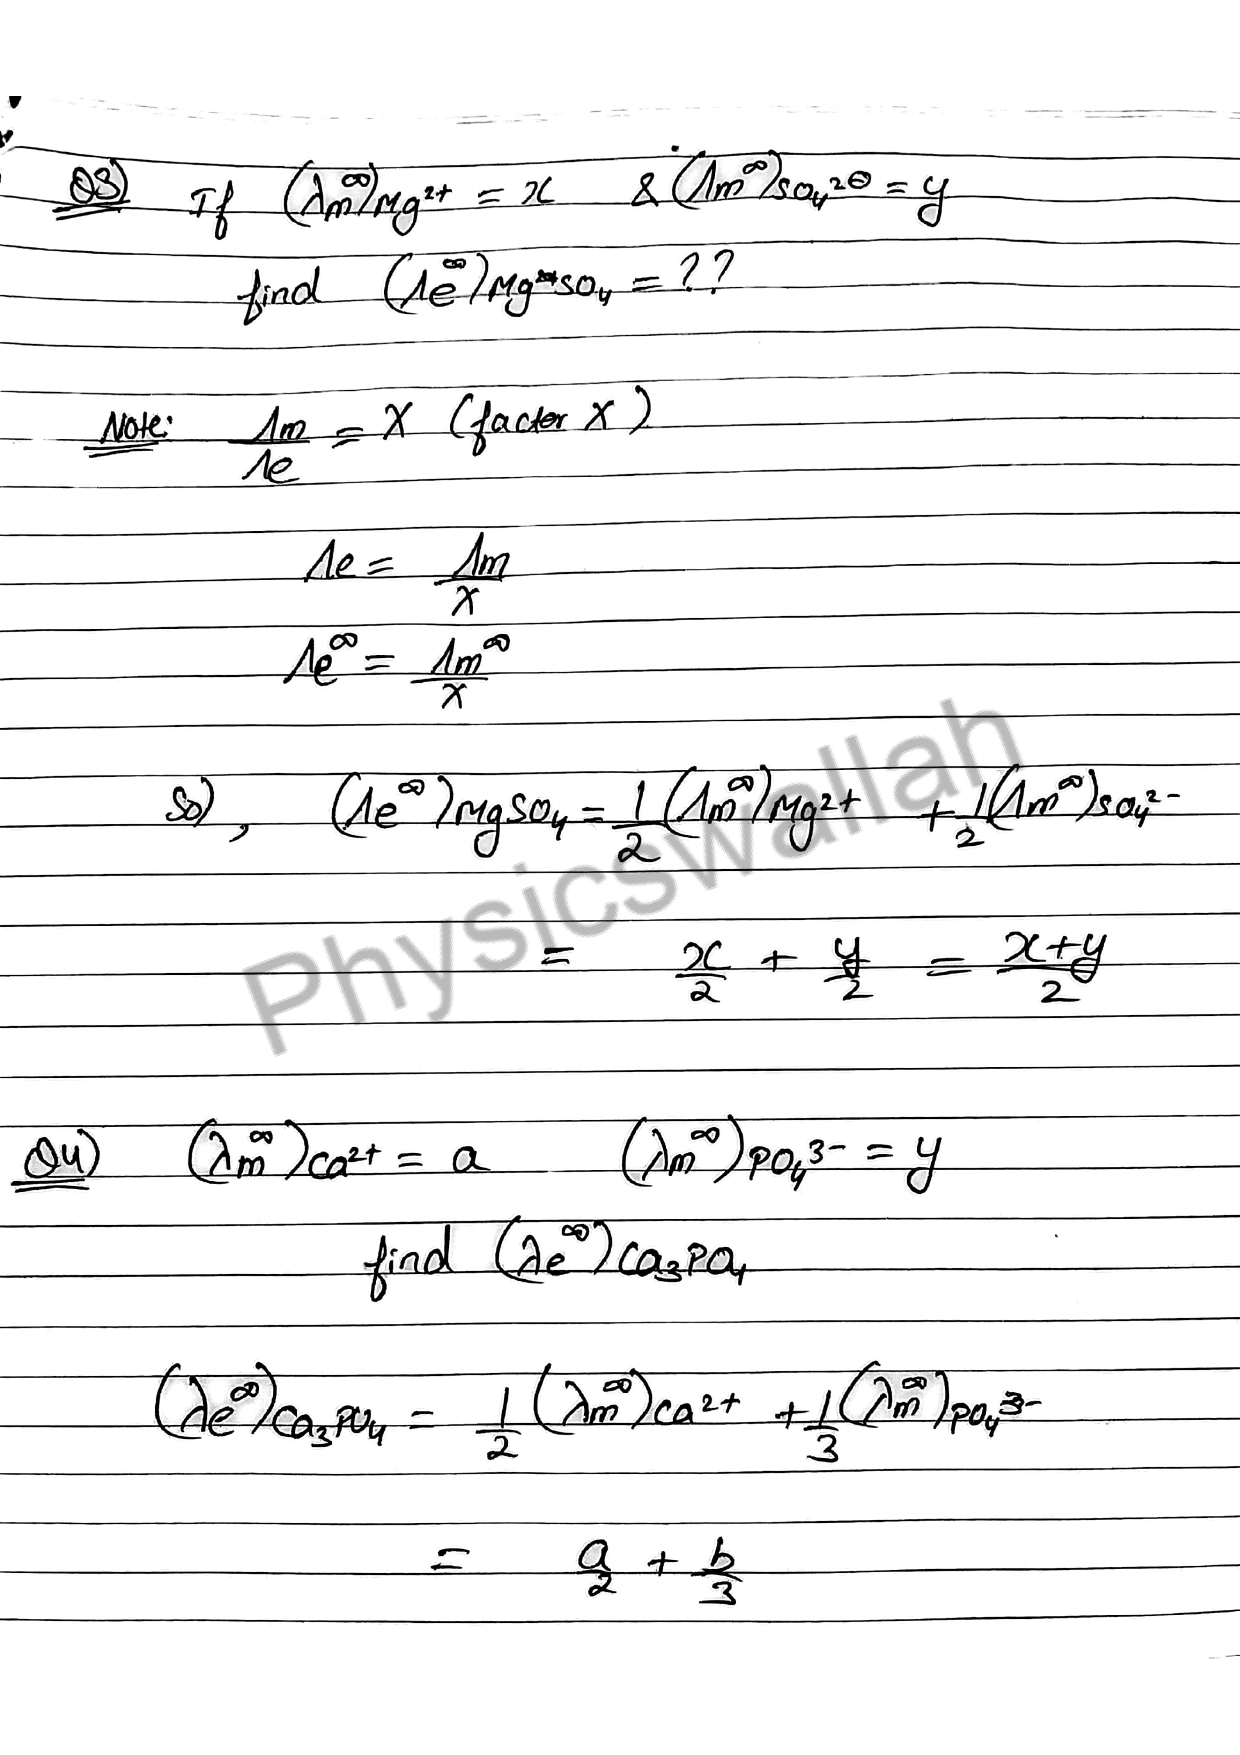 Q3) If (λm^∞)Mg²⁺ = x & (Λm^∞)SO₄²⊖ = y
find (Λe^∞)MgSO₄ = ??
Note: Λm/Λe = X (factor X)
Λe = Λm/X
Λe^∞ = Λm^∞/X
So), (Λe^∞)MgSO₄ = 1/2 (Λm^∞)Mg²⁺ + 1/2 (Λm^∞)SO₄²⁻
= x/2 + y/2 = x+y/2
Physicswallah
Q4) (λm^∞)Ca²⁺ = a (λm^∞)PO₄³⁻ = y
find (λe^∞)Ca₃PO₄
(λe^∞)Ca₃PO₄ = 1/2 (λm^∞)Ca²⁺ + 1/3 (λm^∞)PO₄³⁻
= a/2 + b/3